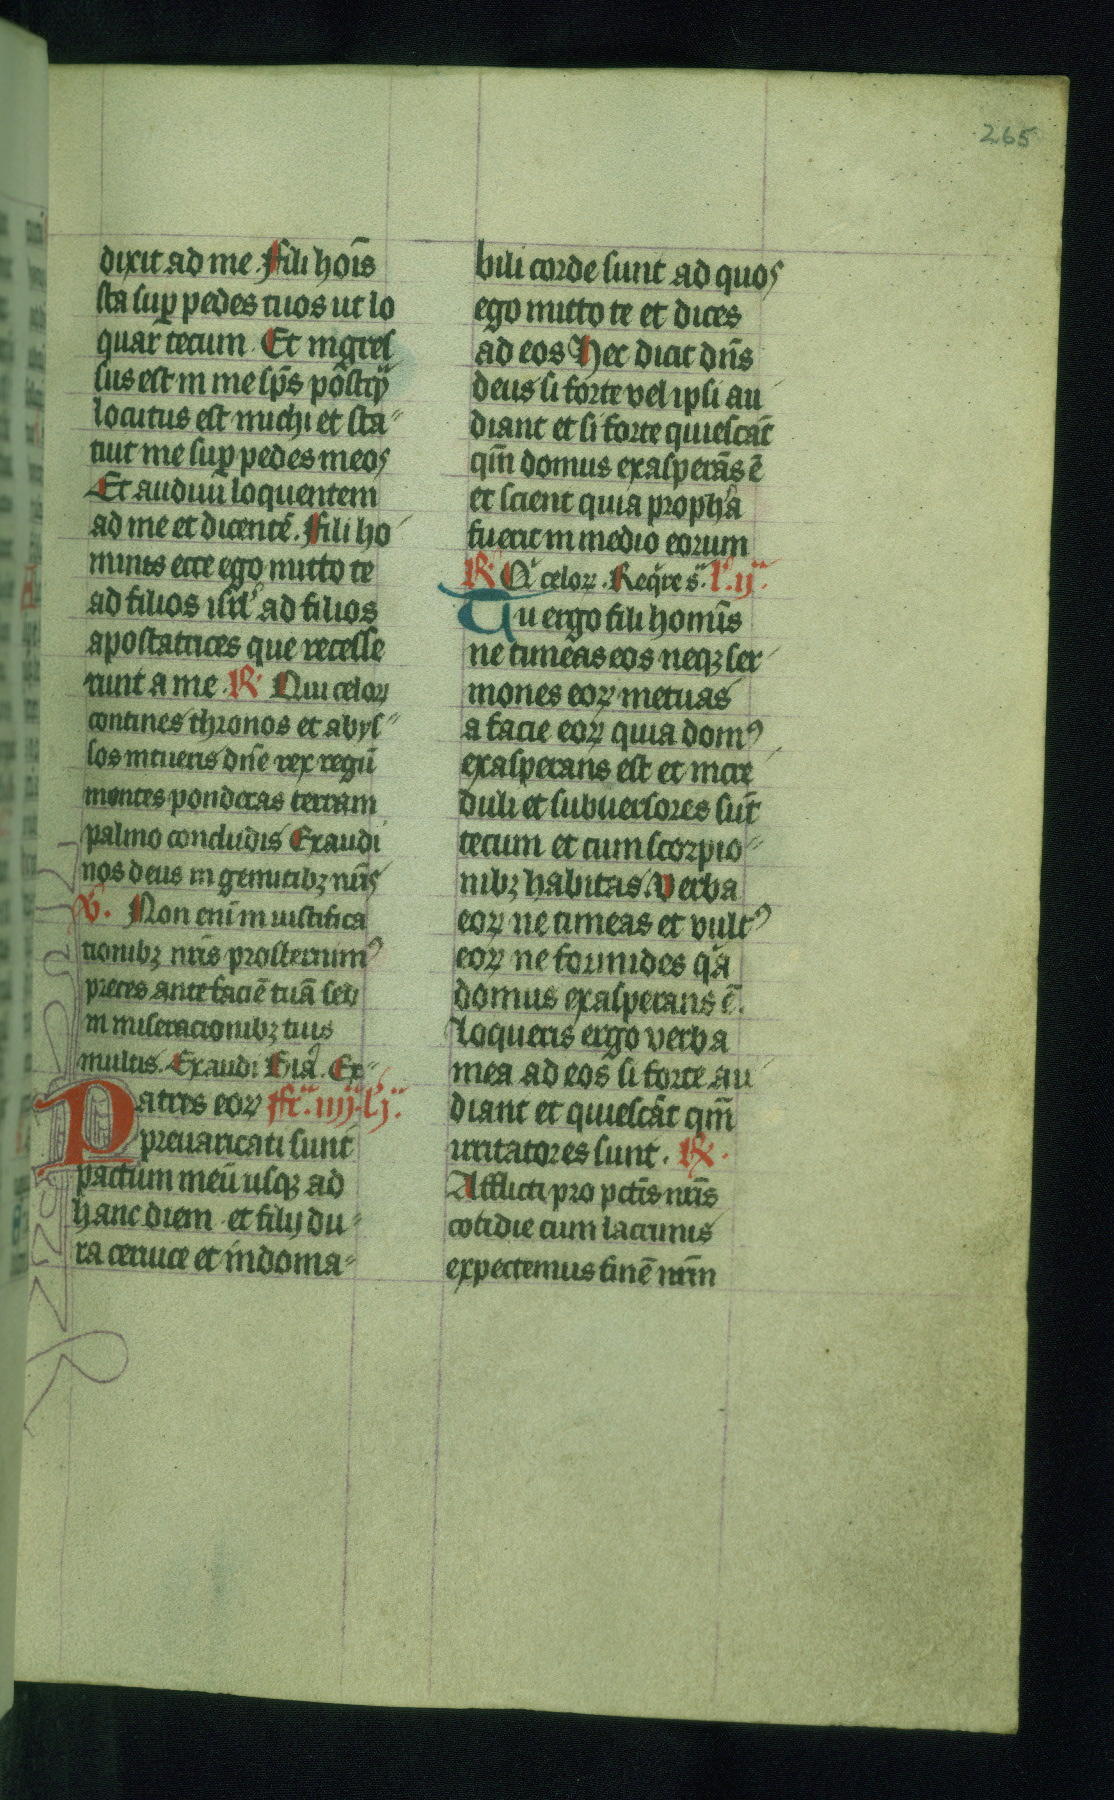 265
dixit ad me. Fili hoīs
sta suꝑ pedes tuos ut lo
quar tecum. Et ingres
sus est in me sp̄s pōstq̄
locutus est michi et sta
tuit me suꝑ pedes meos
Et audiui loquentem
ad me et dicentē. Fili ho
minis ecce ego mitto te
ad filios isrl̓ ad filios
apostatrices que recesse
runt a me. ℟. Qui celoꝝ
contines thronos et abys
sos intueris dn̄e rex regū
montes ponderas terram
palmo concludis Exaudi
nos deus in gemitibꝫ nr̄is
℣. Non enī in iustifica
tionibꝫ nr̄is prosternimꝰ
preces ante faciē tuā sed
in miseracionibꝫ tuis
multis. Exaudi Gla. Ex
Patres eoꝝ fr̄. iiij. l. j.
preuaricati sunt
pactum meū usqꝫ ad
hanc diem et filij du
ra ceruice et indoma
bili corde sunt ad quos
ego mitto te et dices
ad eos Hec dicit dn̄s
deus si forte vel ipsi au
diant et si forte quiescāt
qm̄ domus exasperās ē
et scient quia proph̓a
fuerit in medio eorum
℟. Qͥ celoꝝ. Reqͥre sͣ. l. ij.
Tu ergo fili hominis
ne timeas eos neqꝫ ser
mones eoꝝ metuas
a facie eoꝝ quia domꝰ
exasperans est et incre
duli et subuersores sūt
tecum et cum scorpio
nibꝫ habitas. Verba
eoꝝ ne timeas et vultꝰ
eoꝝ ne formides qͥa
domus exasperans ē.
Loqueris ergo verba
mea ad eos si forte au
diant et quiescāt qm̄
irritatores sunt. ℟.
Afflicti pro pctīs nr̄is
cotidie cum lacrimis
expectemus finē nr̄m